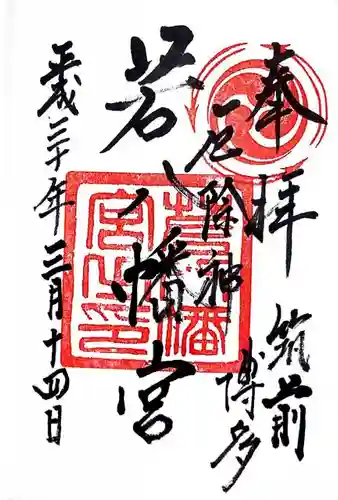 奉拝
筑前
博多
厄除神
若八幡宮
平成三十年三月十四日
若八幡
宮之印